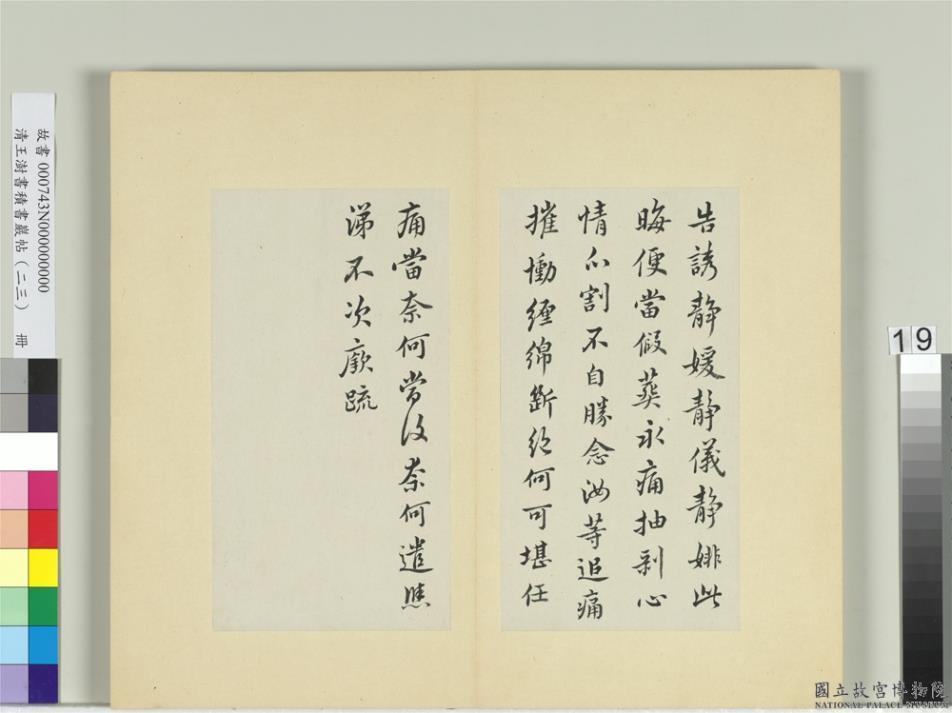 告誘静媛静儀静此
晦便當假葬永痛抽剝心
情分割不自勝念汝等追痛
摧慟纏綿斷絕何可堪任
痛當奈何當復奈何遣
涕不次廞疏
故書 000743N000000000
清王澍書積書巖帖(二三) 冊
19
國立故宮博物院
NATIONAL PALACE MUSEUM